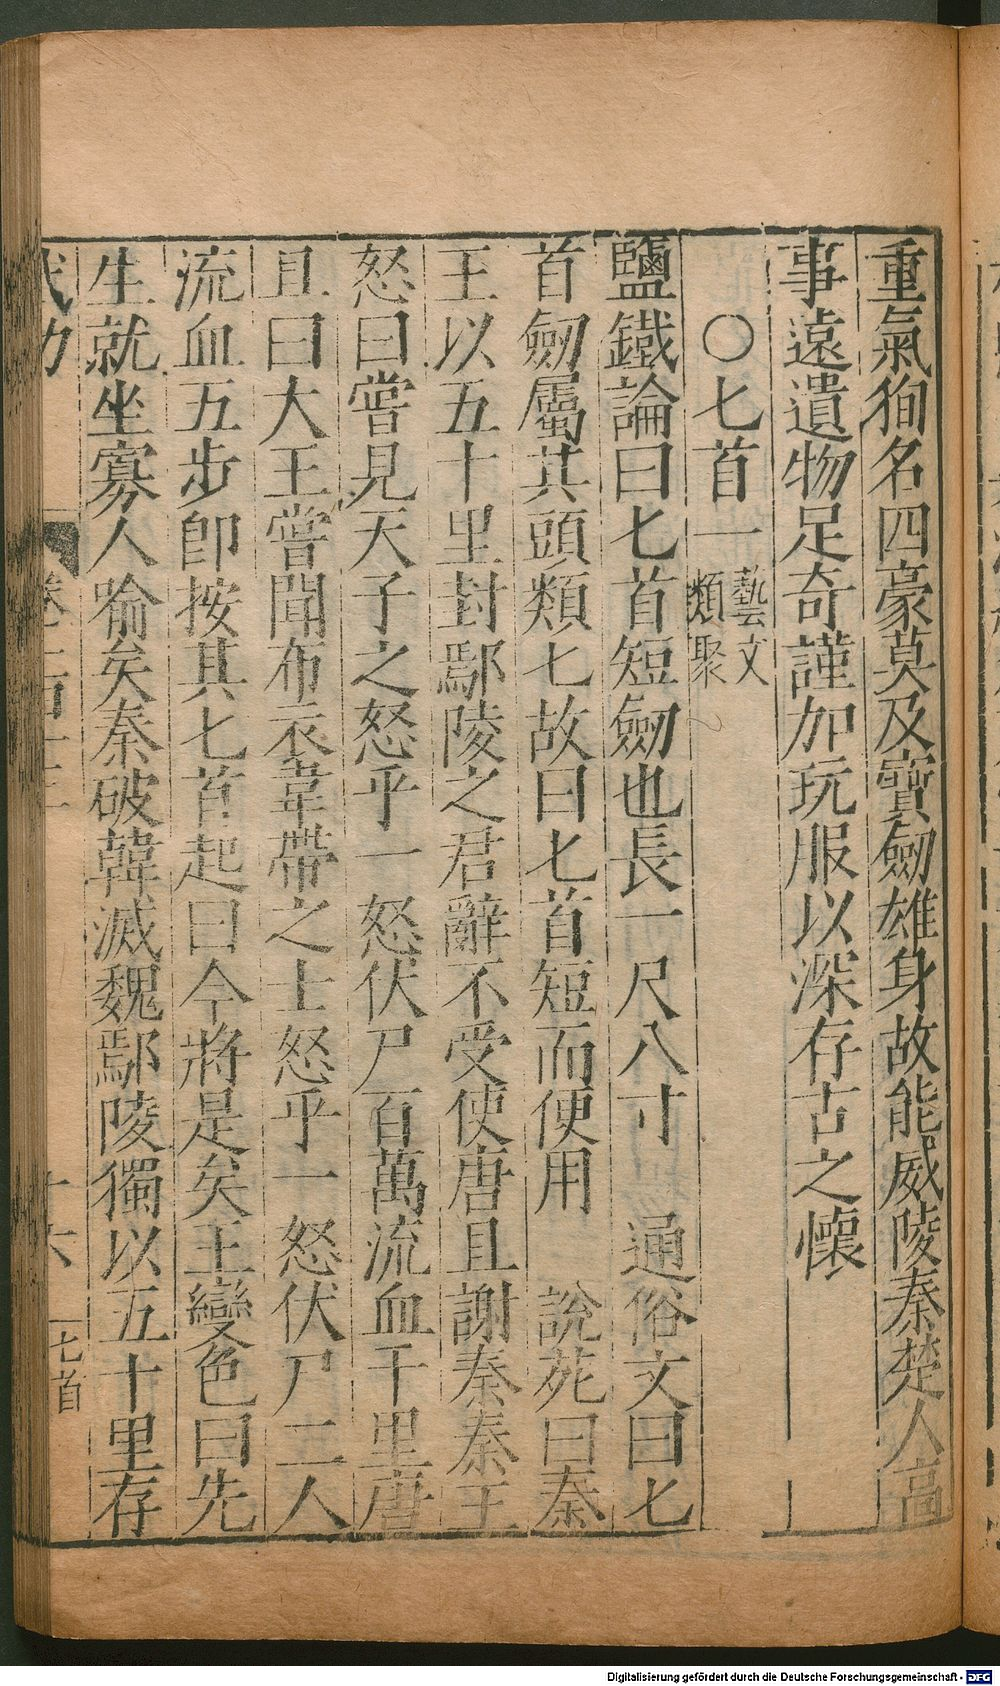 重氣狥名四豪莫及寳劒雄身故能威陵秦楚人高
事遠遺物足奇謹加玩服以深存古之懷
〇七首一 藝文類聚
鹽鐵論曰七首短劒也長一尺八寸 通俗文曰七
首劒屬其頭類七故曰七首短而便用 說苑曰秦
王以五十里封鄢陵之君辭不受使唐且謝秦秦王
怒曰嘗見天子之怒乎一怒伏尸百萬流血千里唐
且曰大王嘗聞布衣韋帶之士怒乎一怒伏尸二人
流血五步卽按其七首起曰今將是矣王變色曰先
生就坐寡人喻矣秦破韓滅魏鄢陵獨以五十里存
七首
Digitalisierung gefördert durch die Deutsche Forschungsgemeinschaft - DFG